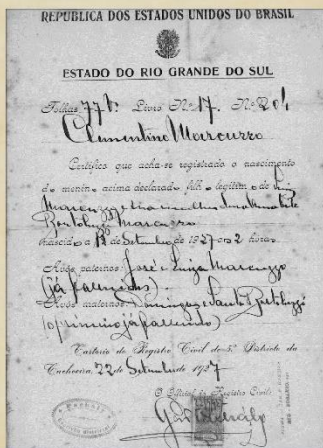 REPUBLICA DOS ESTADOS UNIDOS DO BRASIL
ESTADO DO RIO GRANDE DO SUL
Folhas 77v. Livro Nº 17. Nº 204
Clementino Marcuzzo
Certifico que acha-se registrado o nascimento
do menin. acima declarad. filh. legitim. de
Marcuzzo e sua mulher
Bortoluzzi Marcuzzo
nascid. a 12 de Setembro de 1927 ás 2 horas
Avós paternos: José e Luiza Marcuzzo
(já fallecidos).
Avós maternos: Domingos e Santa Bortoluzzi
(o primeiro já fallecido)
Cartorio do Registro Civil do 5º Districto da
Cachoeira, 22 de Setembro de 1927
O Official do Registro Civil: